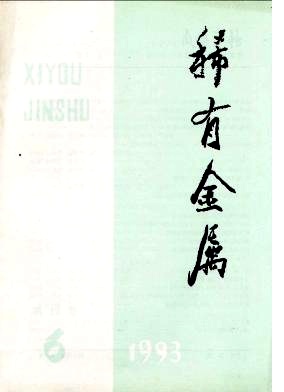 XIYOU
JINSHU
稀有金属
6
1993